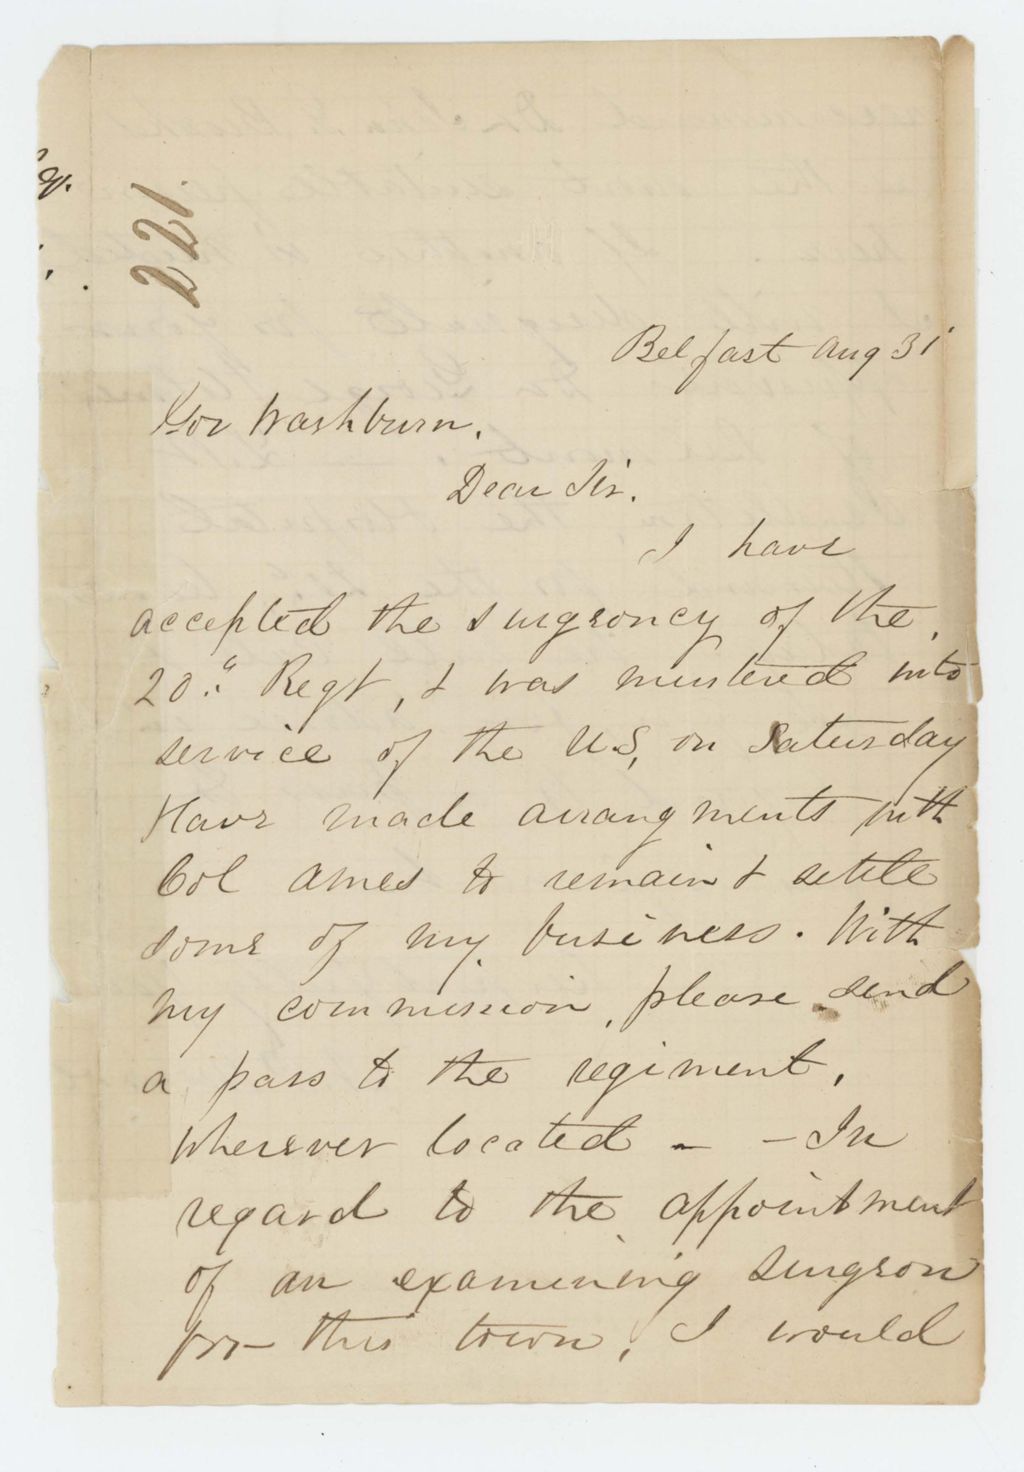 221.
Belfast Aug 31
Gov Washburn.
Dear Sir.
I have
accepted the surgeoncy of the
20." Regt, & was mustered into
service of the U.S, on Saturday
Have made arrangments with
Col Ames to remain & settle
some of my business. With
my commission, please send
a pass to the regiment,
wherever located - - In
regard to the appointment
of an examining surgeon
for this town, I would